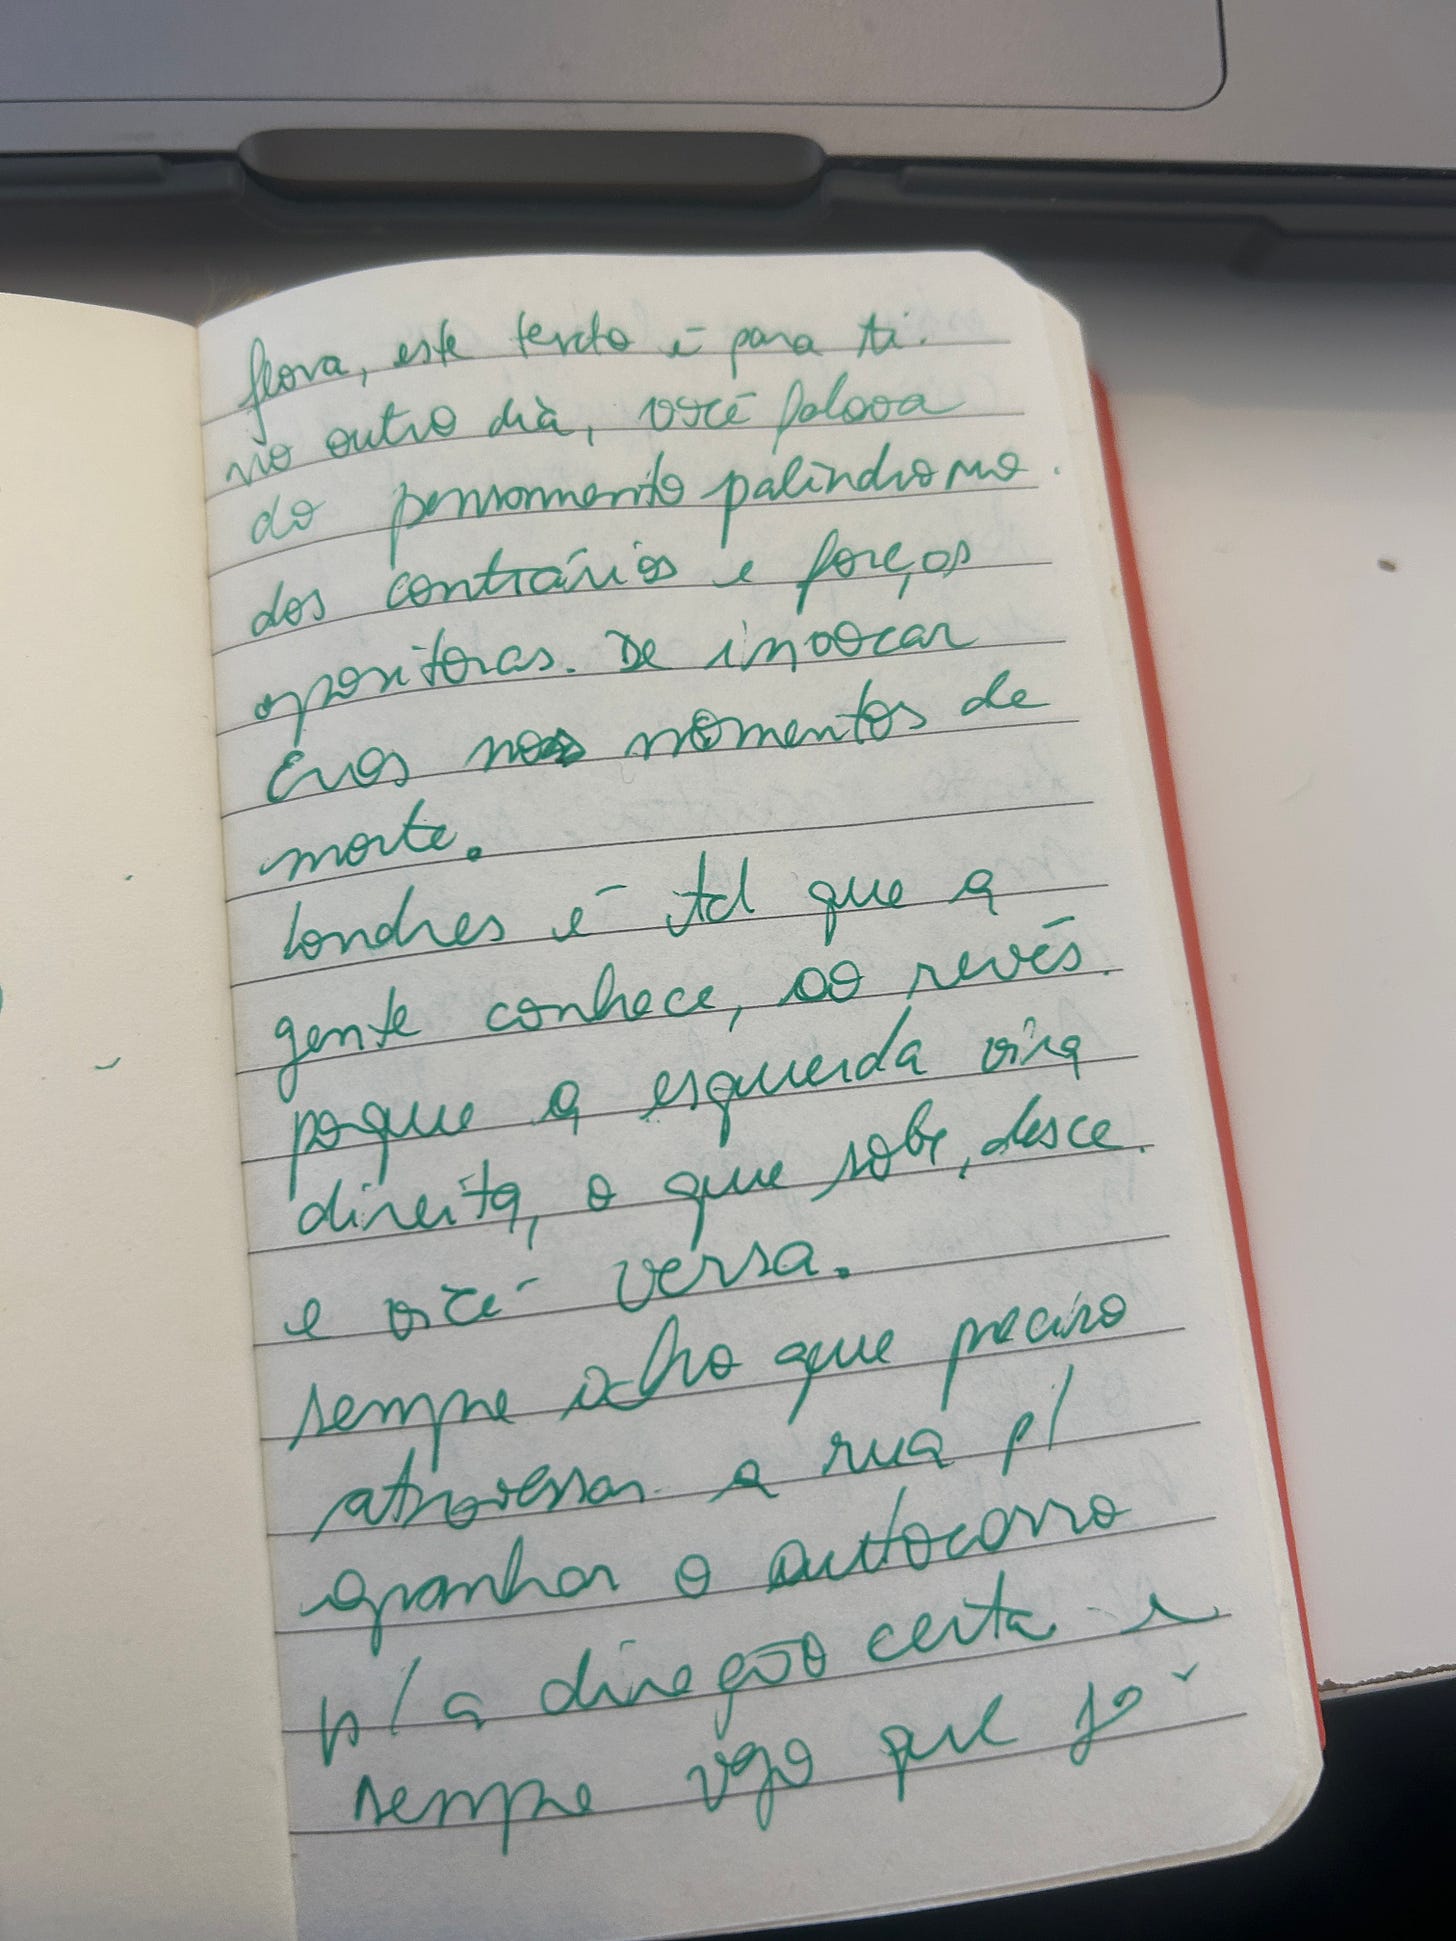 flora, este texto é para ti.
no outro dia, você falava
do pensamento palíndromo.
dos contrários e forças
opositoras. De invocar
Eros nos momentos de
morte.
Londres é td que a
gente conhece, ao revés.
poque a esquerda vira
direita, o que sobe, desce.
e vice versa.
sempre acho que preciso
atravessar a rua p/
apanhar o autocarro
p/ a direção certa e
sempre vejo que já